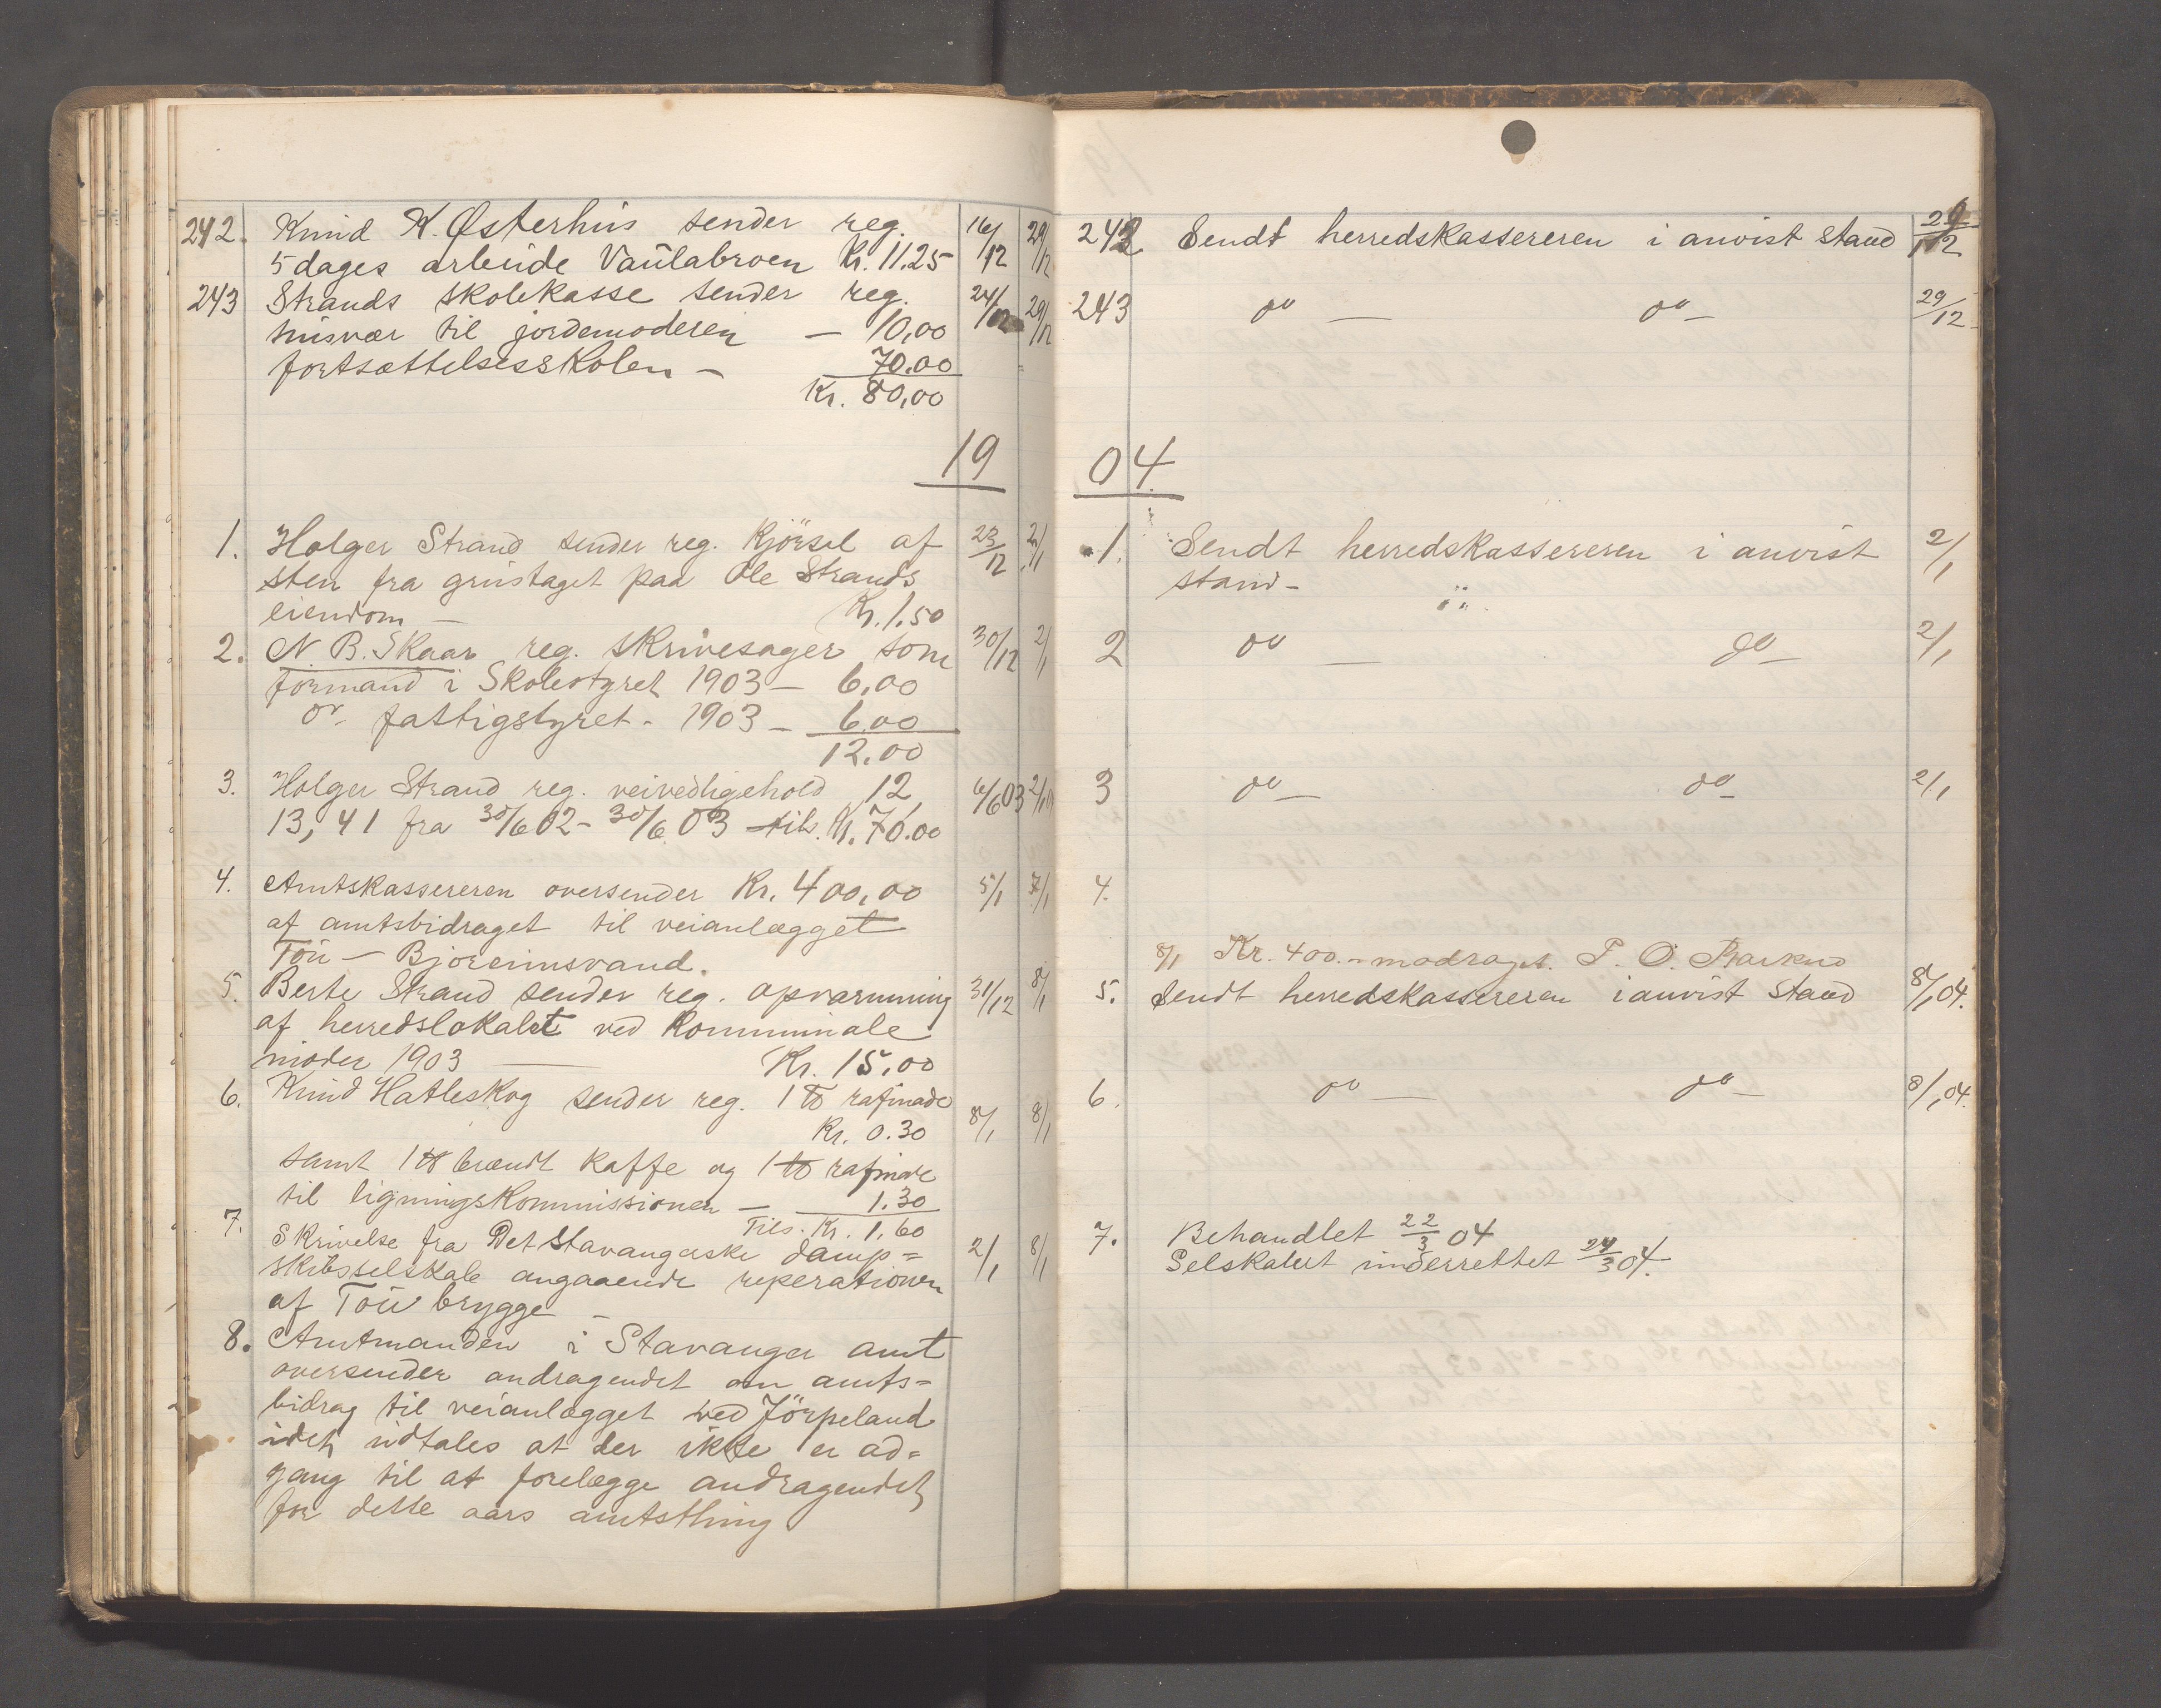 242. Knud K. Østerhus sender reg. 16/12 29/12
5 dages arbeide Vaulabroen Kr. 11.25
243 Strands skolekasse sender reg. 24/12 29/12
husvær til jordemoderen — 10,00
fortsættelsesskolen — 70.00
Kr. 80,00
19
1. Holger Strand sender reg. Kjörsel af 23/12 2/1
sten fra grustaget paa Ole Strands
eiendom — Kr. 1.50
2. N. B. Skaar reg. skrivesager som 30/12 2/1
formand i Skolestyret 1903 — 6.00
do - fattigstyret - 1903 — 6.00
12.00
3. Holger Strand reg. veivedligehold 12, 6/6 03 2/1 04
13, 41 fra 30/6 02 - 30/6 03 tils. Kr. 70.00
4. Amtskassereren oversender Kr. 400,00 5/1 7/1
af amtsbidraget til veianlægget
Tou — Bjoreimsvand.
5. Berte Strand sender reg. opvarmning 31/12 8/1
af herredslokalet ved kommunale
moder 1903 — Kr. 15.00
6. Knud Hatleskog sender reg. 1 ℔ rafinade 8/1 8/1
Kr. 0.30
samt 1 ℔ brændt kaffe og 1 ℔ rafinade
til ligningskommissionen — 1.30
Tils. Kr. 1.60
7. Skrivelse fra Det Stavangerske damp= 2/1 8/1
skibsselskab angaaende reperationen
af Tou brygge —
8. Amtmanden i Stavanger amt
oversender andragendet om amts=
bidrag til veianlægget ved Jörpeland
idet udtales at der ikke er ad=
gang til at forelægge andragendet
for dette aars amtsthing
242 Sendt herredskassereren i anvist stand 29/12
243 do — do — 29/12
04.
1. Sendt herredskassereren i anvist 2/1
stand —
2 do — do — 2/1
3 do — do — 2/1
4.
8/1 Kr. 400.- modraget. P. O.
5. Sendt herredskassereren i anvist stand 8/1 04.
6. do — do — 8/1 04.
7. Behandlet 22/3 04
Selskabet underrettet 24/3 04.